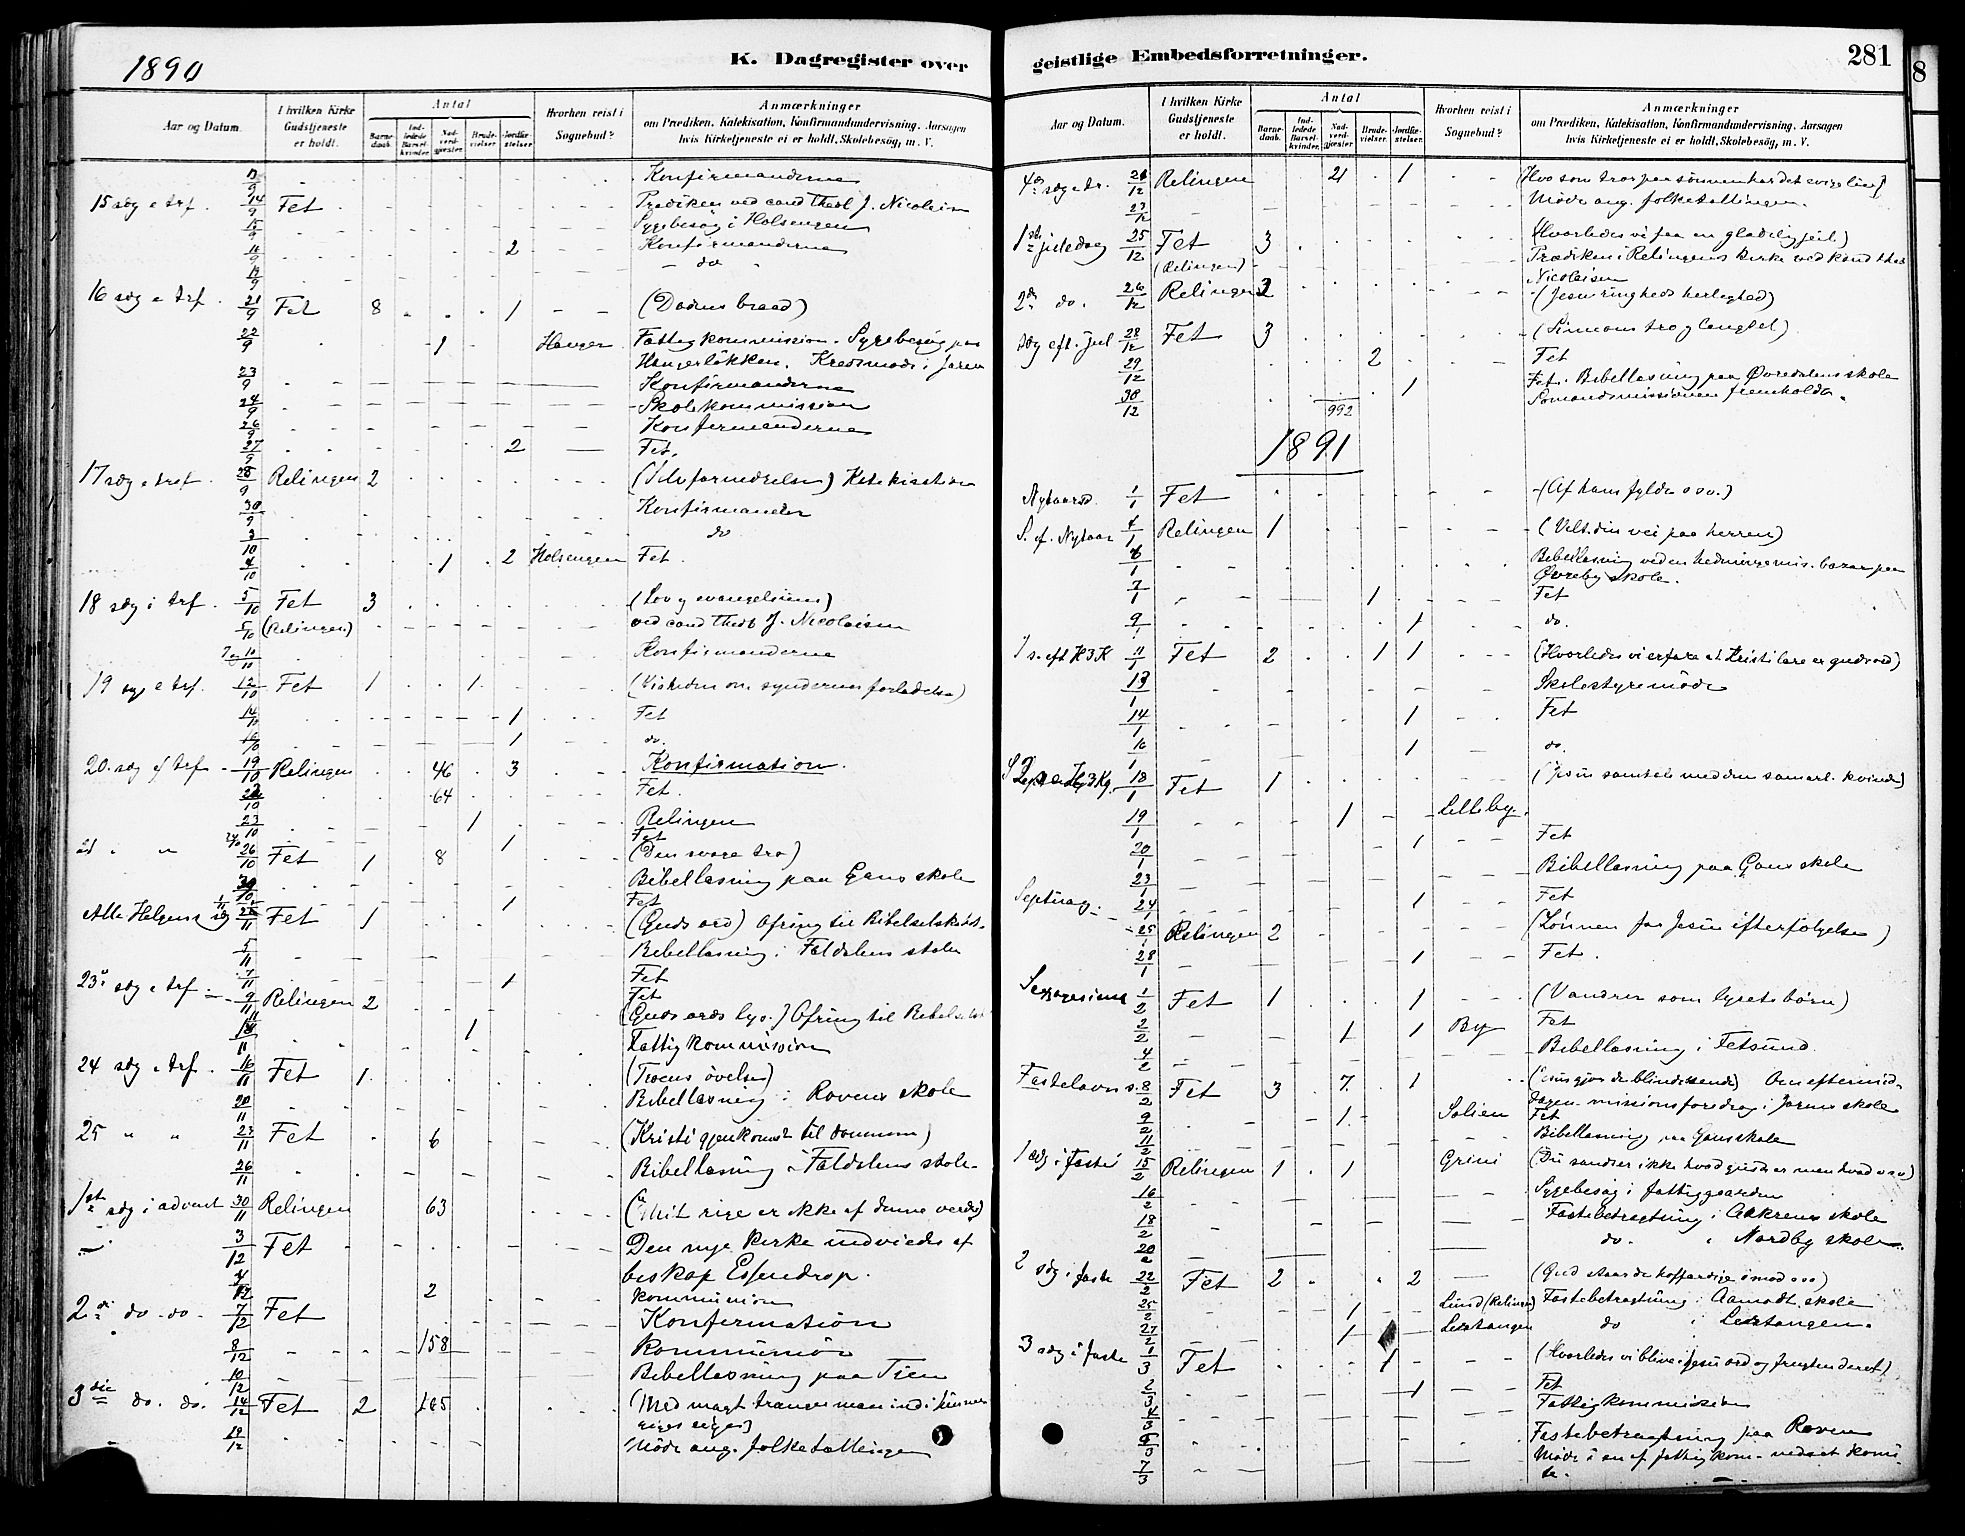 1890
K. Dagregister over
Aar og Datum.
I hvilken Kirke Gudstjeneste er holdt.
Antal
Barne-daab.
Ind-ledede Barsel-kvinder.
Nad-verd-gjester.
Brude-vielser.
Jordfæ-stelser.
Hvorhen reist i Sognebud?
Anmærkninger
om Prædiken, Katekisation, Konfirmandundervisning, Aarsagen
hvis Kirketjeneste ei er holdt, Skolebesög, m. V.
Konfirmanderne
15 søg e trf. 14/9 Fet Prediken ved cand theol J. Nicolaisen
Sygebesøg i Holsengen
2 Konfirmanderne
do
16 søg e trf. 21/9 Fet 8 1 (Dødens braad)
22/9 1 Hauger Fattigkommission. Sygebesøg paa
Haugerløkken. Kredsmøde i Jaren
23/9 Konfirmanderne
24/9 Skolekommission
26/9 Konfirmanderne
27/9 2 Fet.
17 søg e tref. 28/9 Relingen 2 (Selvfornedrelse) Katekisation
30/9 Konfirmander
3/10 do
4/10 1 2 Holsengen Fet.
18 søg i trf. 5/10 Fet 3 (Lov og evangelium)
5/10 (Relingen) ved cand theol J. Nicolaisen
7 og 10/10 Konfirmanderne
19 søg e trf. 12/10 Fet 1 1 (Visheden om syndernes forladelse)
14/10 1 Fet
16/10 1 do.
20. søg ef trf 19/10 Relingen 46 3 Konfirmation.
64 Fet.
23/10 1 Relingen
1 Fet
26/10 Fet 1 8 (Den svage tro)
30/10 Bibellæsning paa Gans skole
1 Fet
Alle Helgens søg Fet 1 (Guds ord) Ofring til Bibelselskabet.
5/11 Bibellæsning i Faldalens skole
7/11 1 Fet
23 søg e trf. 9/11 Relingen 2 Fet
(Guds ords lys.) Ofring til Bibelselsk
1 Fattigkommission
24 søg e trf. 16/11 Fet 1 (Troens øvelse)
20/11 Bibellæsning i Rovens skole
25 " " 23/11 Fet 6 (Kristi gjenkomst til dommen)
26/11 Bibellæsning i Faldalens skole.
1ste søg i advent 30/11 Relingen 63 (Mit rige er ikke af denne verden)
3/12 Fet Den nye kirke indviedes af
biskop Essendrop.
4/12 2 kommunion
2den do. do. 7/12 Fet Konfirmation
8/12 158 Kommunion
10/12 Bibellæsning paa Tien
3die do. do. 14/12 Fet 2 165 (Med magt trænger man ind i himme
riges rige)
Møde ang. folketællingen
geistlige Embedsforretninger.
281
8
Aar og Datum.
I hvilken Kirke Gudstjeneste er holdt.
Antal
Barne-daab.
Ind-ledede Barsel-kvinder.
Nad-verd-gjester.
Brude-vielser.
Jordfæ-stelser.
Hvorhen reist i Sognebud?
Anmærkninger
om Prædiken, Katekisation, Konfirmandundervisning, Aarsagen
hvis Kirketjeneste ei er holdt, Skolebesög, m. V.
4de søg e tr. 21/12 Relingen 21 1 (Hvo som tror paa sønnen har det evige liv)
Møde ang. folketællingen.
1ste juledag 25/12 Fet 3 (Hvorledes vi faa en glædelig jul)
(Relingen) Prædiken i Relingens kirke ved kand theol
Nicolaisen
2den do. 26/12 Relingen 2 (Jesu ringheds herlighed)
søg eft. Jul 28/12 Fet 3 (Simeons tro og længsel)
29/12 2 Fet
30/12 1 Fet. Bibellæsning paa Øvredalens skole
992 Sømandsmissionen fremholdt.
1891
Nytaarsd. 1/1 Fet (Af hans fylde osv.)
S. ef. Nytaar 4/1 Relingen 1 (Velt din vei paa herren)
6/1 Bibellæsning ved en hedningemis. bazar paa
Øvreby skole.
7/1 1 Fet
9/1 1 do.
1 s. eft H3K 11/1 Fet 2 1 1 (Hvorledes vi erfare at Kristi lære er guds ord)
13/1 Skolestyremøde
14/1 1 Fet
16/1 1 do.
18/1 Fet 1 (Jesu samtale med den samarit. kvinde)
19/1 1 Lilleby.
20/1 1 Fet
23/1 Bibellæsning paa Gans skole
Septuag. 24/1 1 Fet
25/1 Relingen 2 (Lønnen for Jesu efterfølgelse)
28/1 1 Fet.
1/2 Fet 1 1 (Vandrer som lysets børn)
2/2 1 1 By Fet
4/2 Bibellæsning i Fetsund.
Fastelavns s. 8/2 Fet 3 7 1 (Jesus gjør de blinde seende) Om eftermid-
dagen missionsforedrag i Jarens skole
9/2 1 Solien Fet
11/2 Bibellæsning paa Gans skole
1 søg i faste 15/2 Relingen 1 1 Grini (Du sandser ikke hvad guds er men hvad osv)
16/2 Sygebesøg i fattiggaarden
18/2 Fastebetragtning i Akrens skole
20/2 do. i Nordby skole.
2 søg i faste 22/2 Fet 2 2 (Gud staar de hoffærdige imod osv)
25/2 1 Lund (Relingen) Fastebetragtning i Aamodt skole
27/2 1 Leirtangen do i Leirtangen.
3 søg i faste 1/3 Fet 1 (Hvorledes vi blive i Jesu ord og frugten deraf)
2/3 1 Fet
4/3 Fattigkommission
Fastebetragtning paa Roven
7/3 Møde i en af fattigkom. nedsat komi-
te.